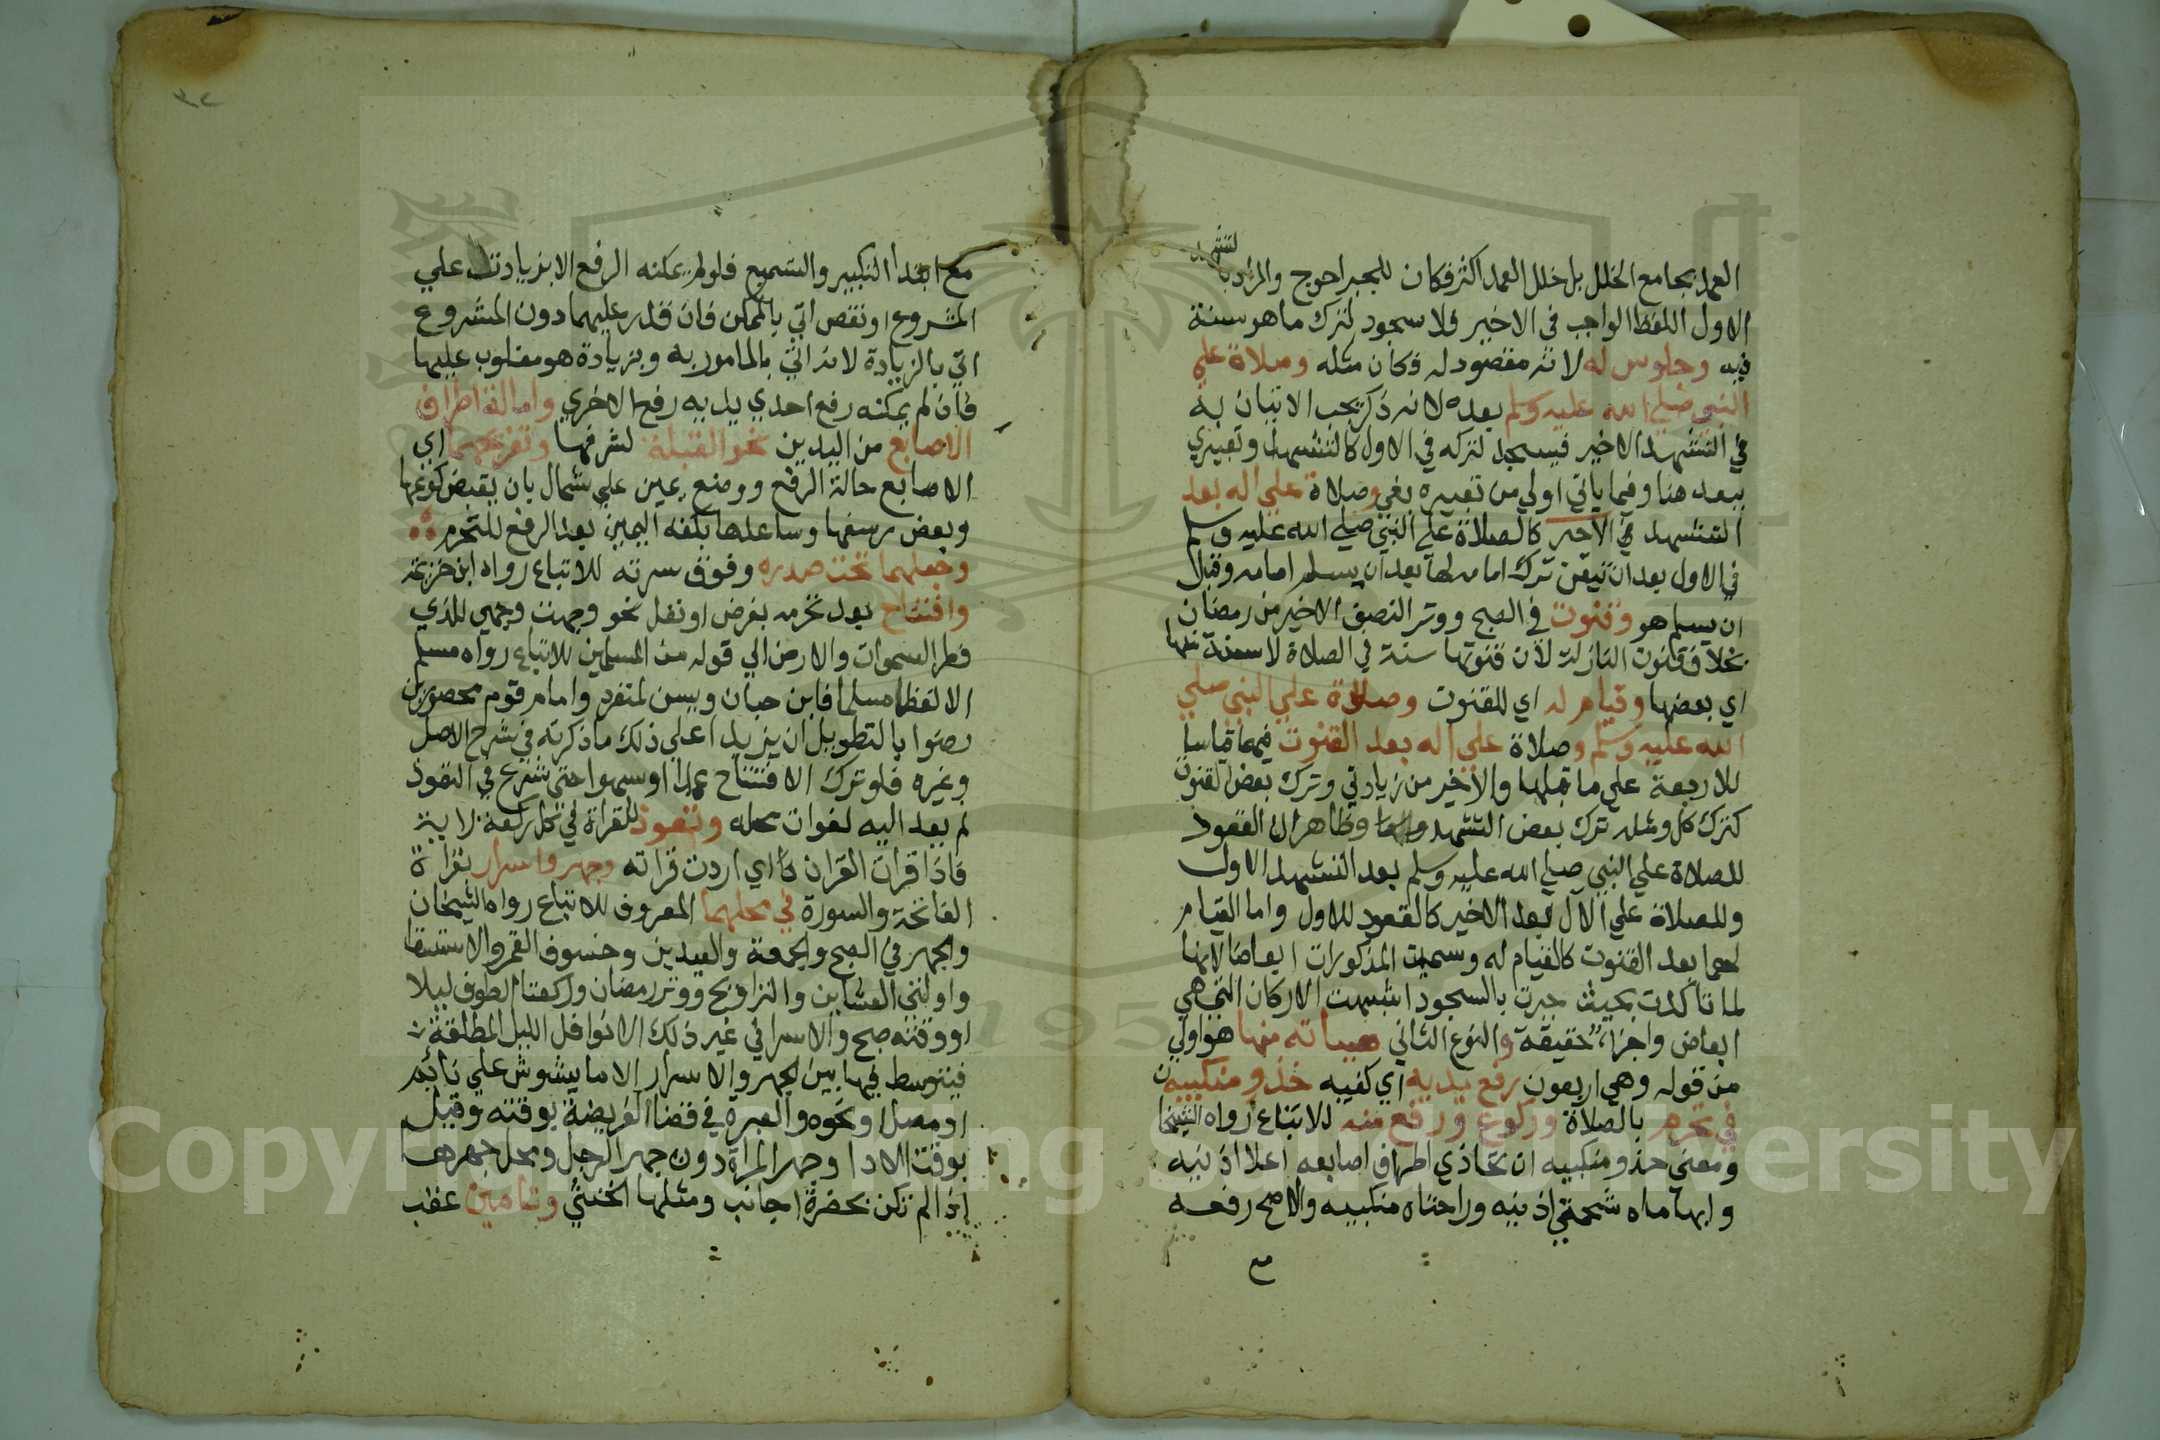 العمد بجامع الخلل بل خلل العمد اكثر فكان للجبر احوج والمراد بالتشهد
الاول اللفظ الواجب في الاخير فلا سجود لترك ما هو سنة
فيه وجلوس له لانه مقصود له فكان مثله وصلاة علي
النبي صلي الله عليه وسلم بعده لانه ذكر يجب الاتيان به
في التشهد الاخير فيسجد لتركه في الاول كالتشهد وتعبيري
ببعد هنا وفيما ياتي اولي من تعبيره بفي وصلاة علي اله بعد
التشهد في الاخير كالصلاة علي النبي صلي الله عليه وسلم
في الاول بعد ان تيقن ترك امامه لها بعد ان يسلم امامه وقبل
ان يسلم هو وقنوت في الصبح ووتر النصف الاخير من رمضان
بخلاف قنوت النازلة لان قنوتها سنة في الصلاة لا سنة منها
اي بعضها وقيام له اي للقنوت وصلاة علي النبي صلي
الله عليه وسلم وصلاة علي اله بعد القنوت فيهما قياسا
للاربعة علي ما قبلها والاخير من زيادتي وترك بعض القنوت
كترك كل ومثله ترك بعض التشهد وظاهر ان القعود
للصلاة علي النبي صلي الله عليه وسلم بعد التشهد الاول
وللصلاة علي الآل بعد الاخير كالقعود للاول واما القيام
لهما بعد القنوت كالقيام له وسميت المذكورات ابعاضا لانها
لما تاكدت بحيث جبرت بالسجود اشبهت الاركان التي هي
ابعاض واجزاء حقيقة والنوع الثاني هيباته منها هو اولي
من قوله وهي اربعون رفع يديه اي كفيه حذو منكبيه
في تحرم بالصلاة وركوع ورفع منه للاتباع رواه الشيخان
ومعني حذو منكبيه ان تحاذي اطراف اصابعه اعلا اذنيه
وابهاماه شحمتي اذنيه وراحتاه منكبيه والاصح رفعه
مع
مع ابتدا التكبير والتسميع فلو لم يمكنه الرفع الا بزيادة علي
المشروع او نقص اتي بالممكن فان قدر عليهما دون المشروع
اتي بالزيادة لانه اتي بالمامور به وبزيادة هو مغلوب عليها
فان لم يمكنه رفع احدي يديه رفع الاخري وامالة اطراف
الاصابع من اليدين نحو القبلة لشرفها وتفريجهما اي
الاصابع حالة الرفع ووضع يمين علي شمال بان يقبض كوعها
وبعض رسغها وساعدها بكفه اليمين بعد الرفع للتحرم
وجعلهما تحت صدره وفوق سرته للاتباع رواه ابن خزيمة
وافتتاح بعد تحرمه بفرض او نفل نحو وجهت وجهي للذي
فطر السموات والارض الي قوله من المسلمين للاتباع رواه مسلم
الا لفظ مسلما فابن حبان ويسن لمنفرد وامام قوم محصورين
رضوا بالتطويل ان يزيدا علي ذلك ما ذكرته في شرح الاصل
وغيره فلو ترك الافتتاح عمدا او سهوا حتي شرع في التعوذ
لم يعد اليه لفوات محله وتعوذ للقراة في كل ركعة لاية
فاذا قرات القران اي اردت قراته وجهر واسرار بقراة
الفاتحة والسورة في محلهما المعروف للاتباع رواه الشيخان
والجهر في الصبح والجمعة والعيدين وخسوف القمر والاستسقا
واولتي العشاين والتراويح ووتر رمضان وركعتا الطواف ليلا
او وقته صبح والاسرار في غير ذلك الا نوافل الليل المطلقة
فيتوسط فيها بين الجهر والاسرار الا ما يشوش علي نايم
او مصل ونحوه والعبرة في قضا الفريضة بوقته وقيل
بوقت الادا وجهر المراة دون جهر الرجل ومحل جهرها
اذا لم تكن بحضرة اجانب ومثلها الخنثي وتامين عقب
1957
Copyright © King Saud University